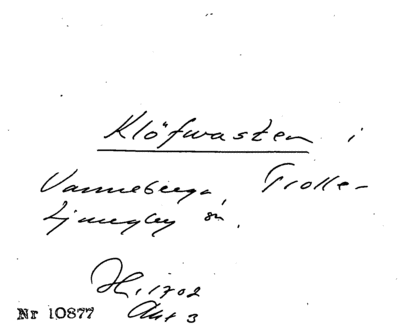 Klöfwasten i
Vanneberga, Trolle-
Ljungby sn.
H. 1702
Akt 3
Nr 10877